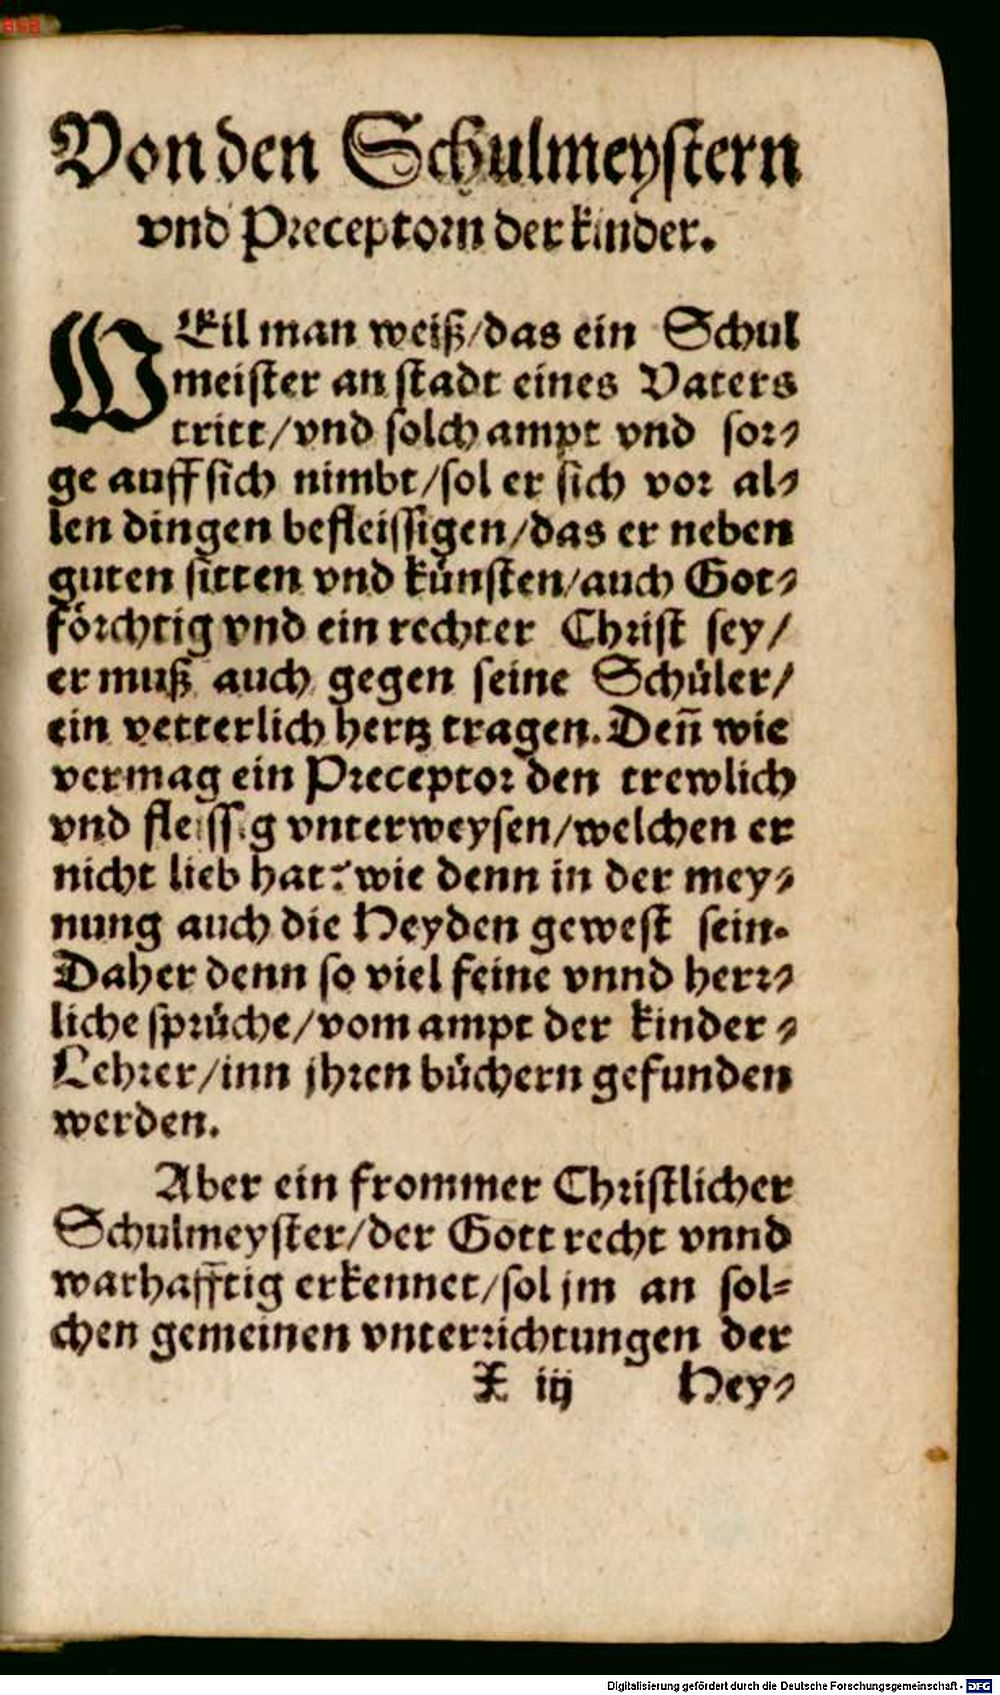 Von den Schulmeystern
vnd Preceptorn der kinder.
WEil man weiß/das ein Schul
meister an stadt eines Vaters
tritt/vnd solch ampt vnd sor⸗
ge auff sich nimbt/sol er sich vor al⸗
len dingen befleissigen/das er neben
guten sitten vnd künsten/auch Got⸗
förchtig vnd ein rechter Christ sey/
er muß auch gegen seine Schüler/
ein vetterlich hertz tragen. Deñ wie
vermag ein Preceptor den trewlich
vnd fleissig vnterweysen/welchen er
nicht lieb hat? wie denn in der mey⸗
nung auch die Heyden gewest sein.
Daher denn so viel feine vnnd herr⸗
liche sprüche/vom ampt der kinder⸗
Lehrer/inn jhren büchern gefunden
werden.
Aber ein frommer Christlicher
Schulmeyster/der Gott recht vnnd
warhafftig erkennet/sol jm an sol⸗
chen gemeinen vnterrichtungen der
X iij Hey⸗
Digitalisierung gefördert durch die Deutsche Forschungsgemeinschaft - DFG